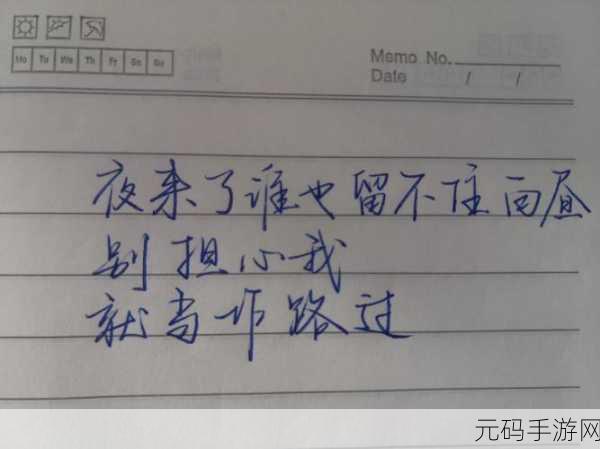 Mo Tu We Th Fr Sa Su
Memo No.
Date / /
夜来了谁也留不住白昼
别担心我
就当作路过
元码手游网